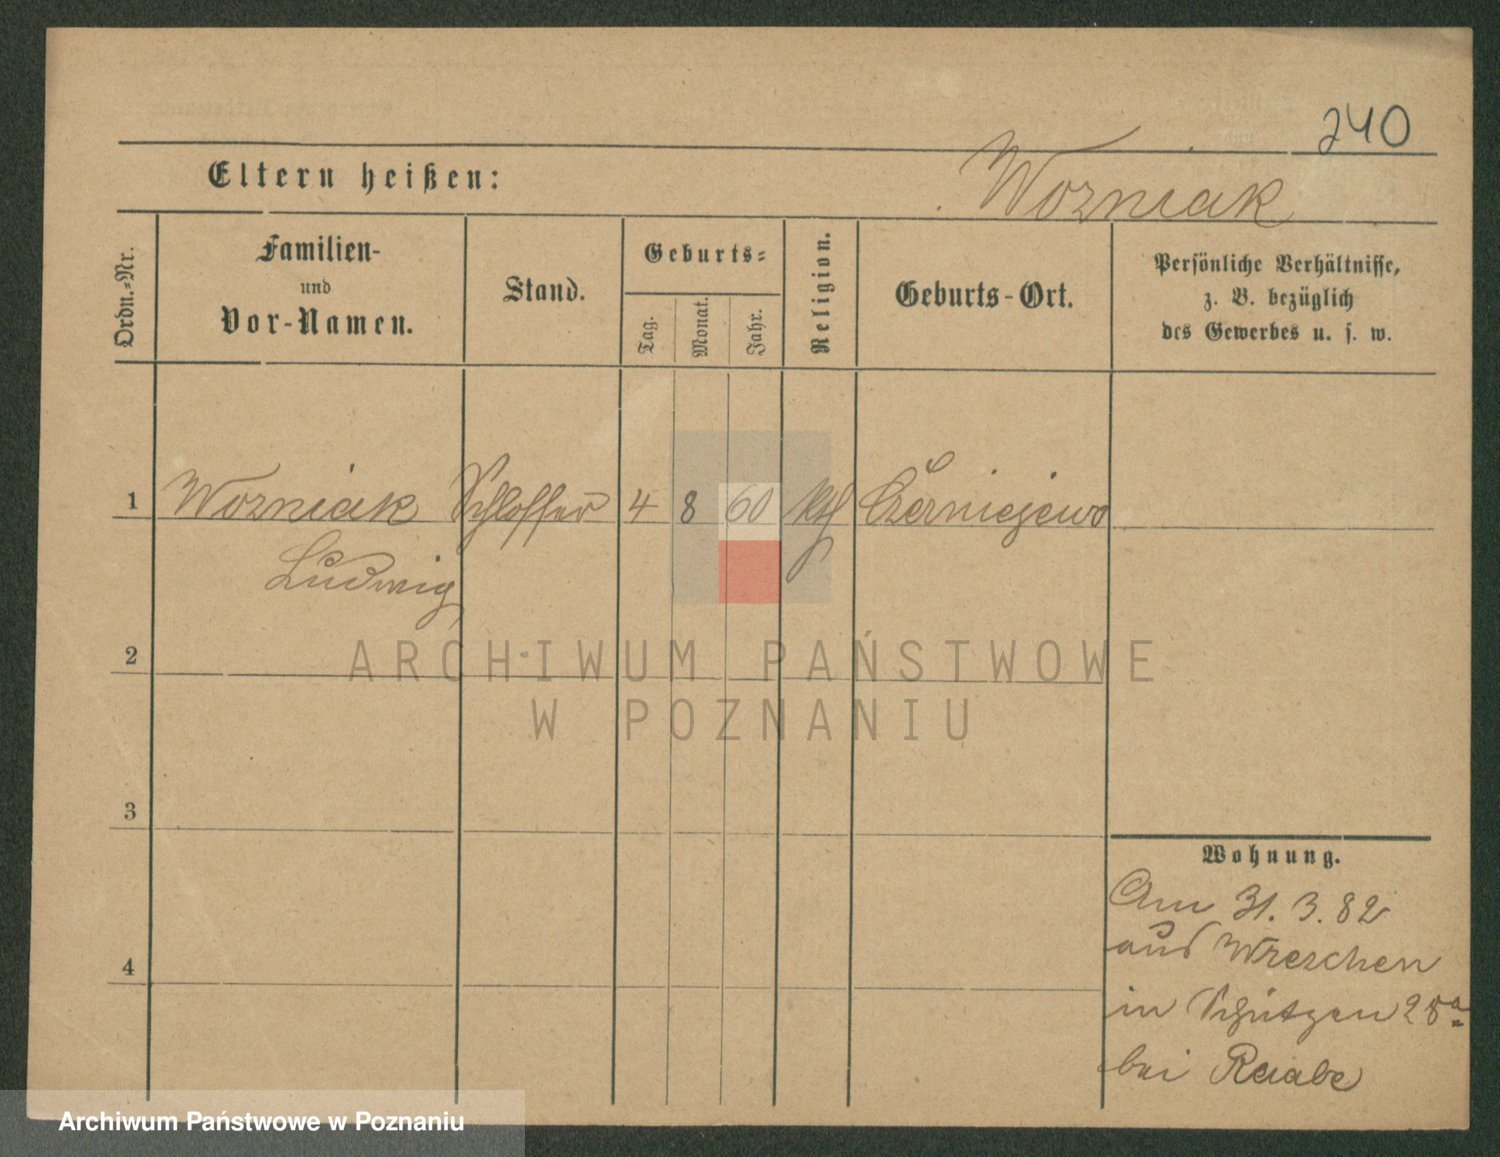 240
Eltern heißen:
Wozniak
Ordn.-Nr.
Familien-
und
Vor-Namen.
Stand.
Geburts-
Tag.
Monat.
Jahr.
Religion.
Geburts-Ort.
Persönliche Verhältnisse,
z. B. bezüglich
des Gewerbes u. s. w.
1 Wozniak Schlosser 4 8 60 kth Czerniejewo
Ludwig
2
ARCHIWUM PAŃSTWOWE
W POZNANIU
3
Wohnung.
Am 31. 3. 82
aus Wreschen
in Schützen 28a
bei Raabe
4
Archiwum Państwowe w Poznaniu